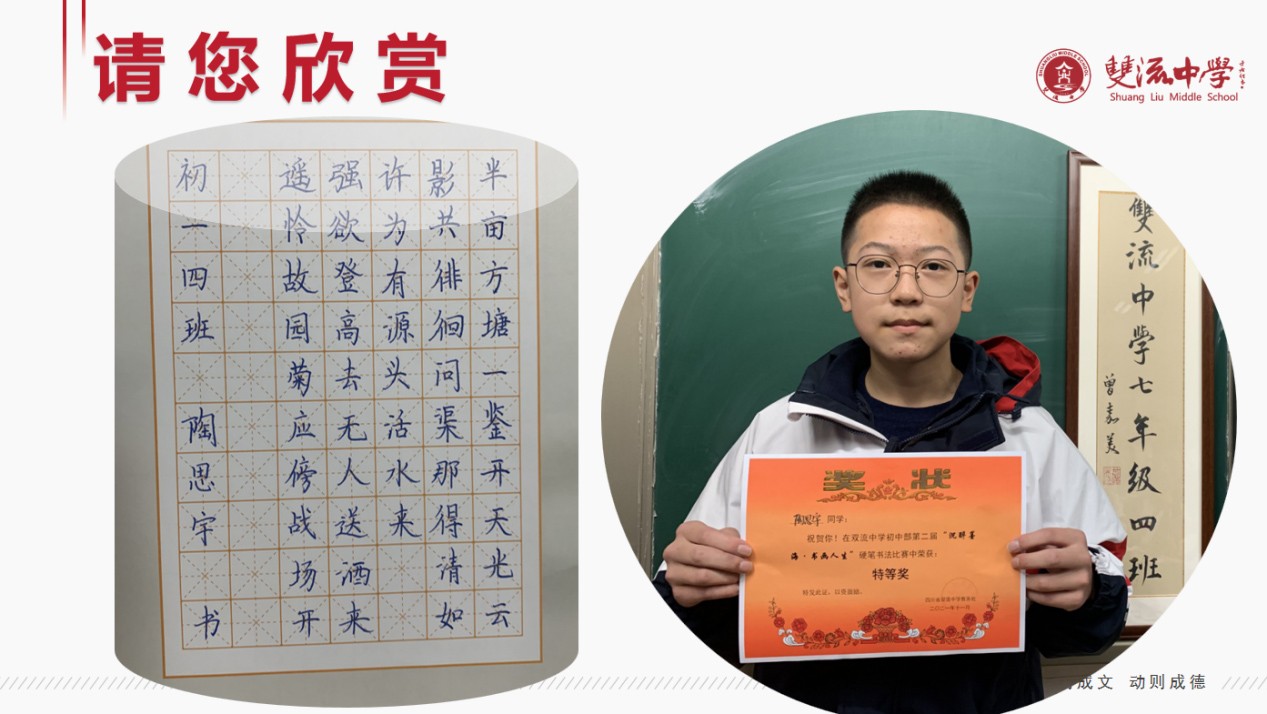 请您欣赏
雙流中学
Shuang Liu Middle School
半亩方塘一鉴开天光云
影共徘徊问渠那得清如
许为有源头活水来
强欲登高去无人送酒来
遥怜故园菊应傍战场开
初一四班 陶思宇 书
雙流中學七年级四班
曾嘉美
奖状
陶思宇 同学:
祝贺你!在双流中学初中部第二届“沉醉墨
海·书画人生”硬笔书法比赛中荣获:
特等奖
特发此证,以资鼓励。
二〇二一年十一月
成文 动则成德